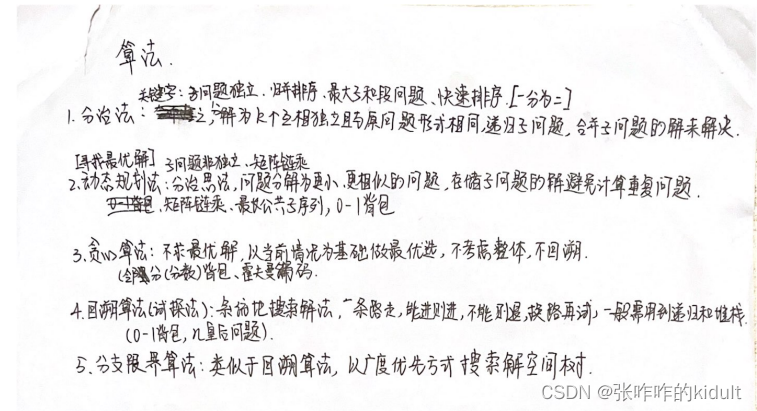 算法.
关键字:子问题独立、归并排序、最大子和段问题、快速排序.[一分为二]
1.分治法: 分解为K个互相独立且与原问题形式相同,递归子问题,合并子问题的解来解决.
[寻找最优解] 子问题非独立、矩阵链乘
2.动态规划法:分治思法,问题分解为更小、更相似的问题,存储子问题的解避免计算重复问题.
0-1背包、矩阵链乘、最长公共子序列,0-1背包
3.贪心算法:不求最优解,以当前情况为基础做最优选,不考虑整体,不回溯.
分(分数)背包、霍夫曼编码.
4.回溯算法(试探法):条前地搜索解法,一条路走,能进则进,不能则退,换路再试,一般需用到递归和堆栈.
(0-1背包,n皇后问题).
5.分支限界算法:类似于回溯算法,以广度优先方式搜索解空间树.
CSDN @张咋咋的kidult